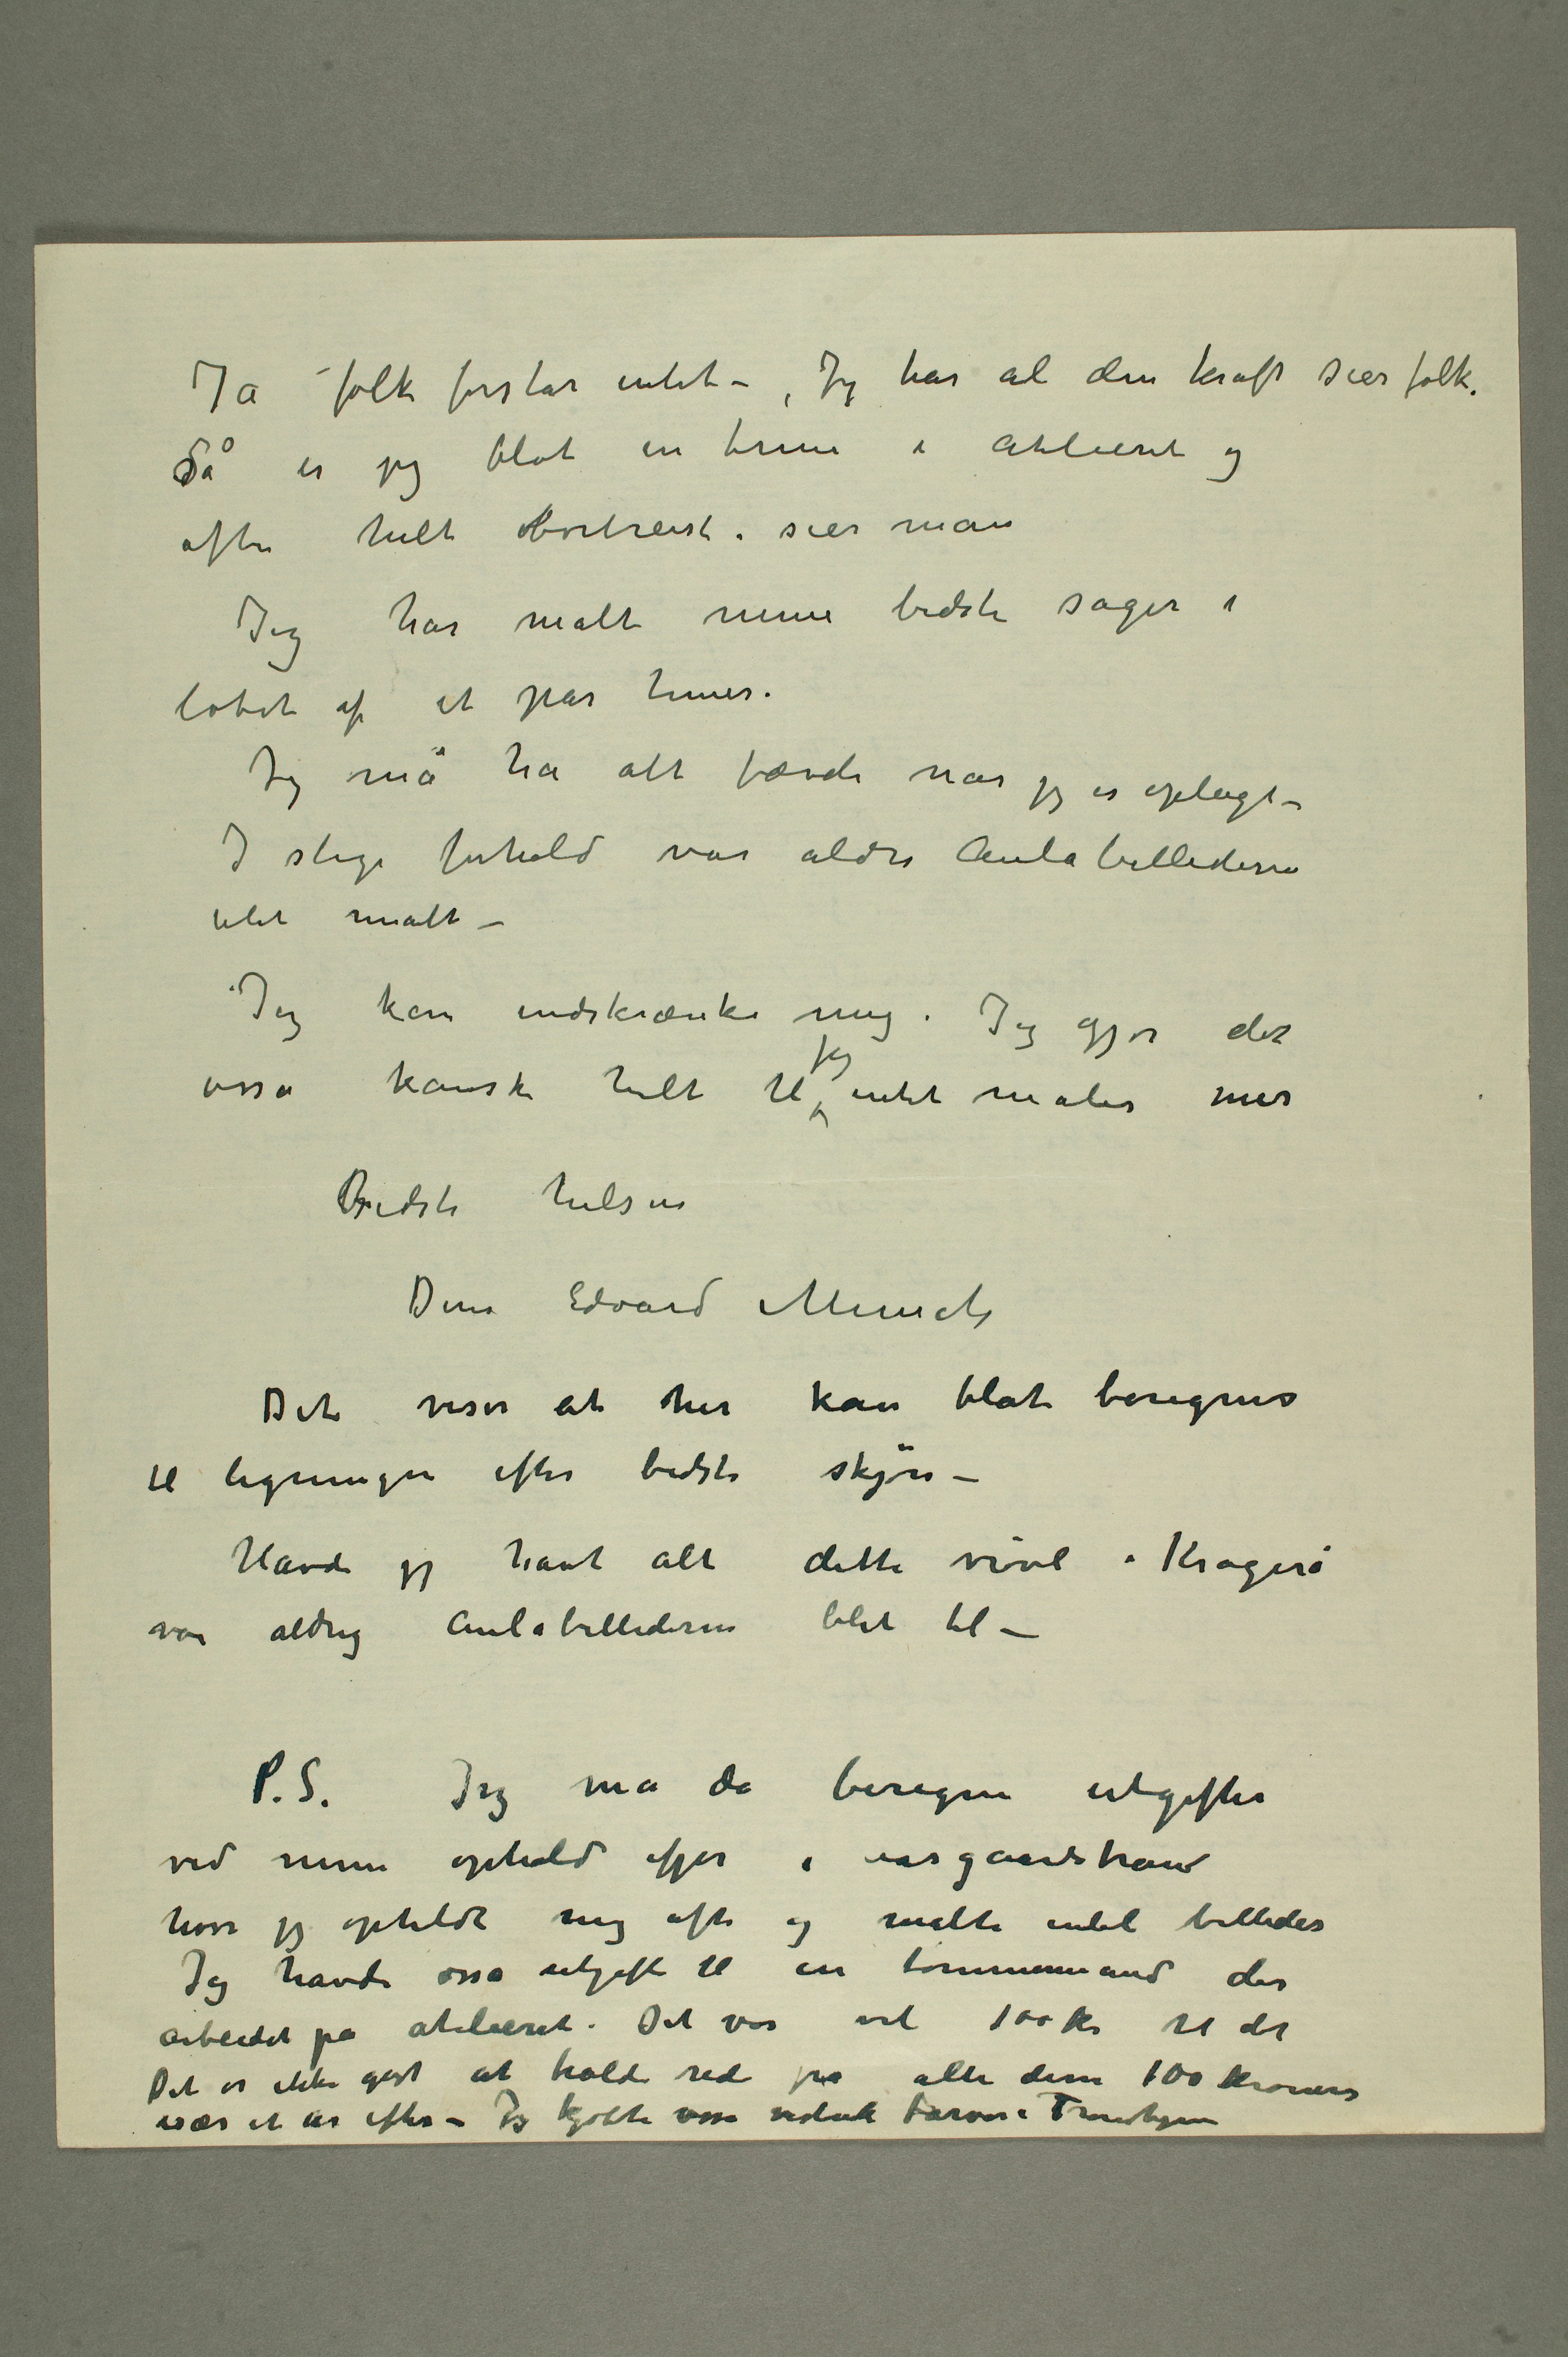 Ja folk forstår intet –, Jeg har al den kraft sier folk.
Så er jeg blot en time i atelieret og
ofte helt bortreist. sier man
Jeg har malt mine bedste sager i
løbet af et par timer.
Jeg må ha alt færdi når jeg er oplagt –
I slige forhold var aldri Aulabillederne
blit malt –
Jeg kan indskrænke mig. Jeg gjør det
osså kanske helt til jeg intet maler mer
Bedste hilsen
Deres Edvard Munch
Det viser at her kan blot beregnes
til ligningen efter bedste skjøn –
Havde jeg havt alt dette vrøvl i Kragerø
var aldrig Aulabillederne blit til –
P.S. Jeg må da beregne utgifter
ved mine ophold ifjor i Aasgaardstrand
hvor jeg opholdt mig ofte og malte endel billeder
Jeg havde osså utgift til en tømmermand der
arbeidet på atelieret. Det var vel 100 kr til det
Det er ikke godt at holde rede på alle disse 100 kroners
især et år efter – Jeg kjøbte osså endel farver i Trondhjem